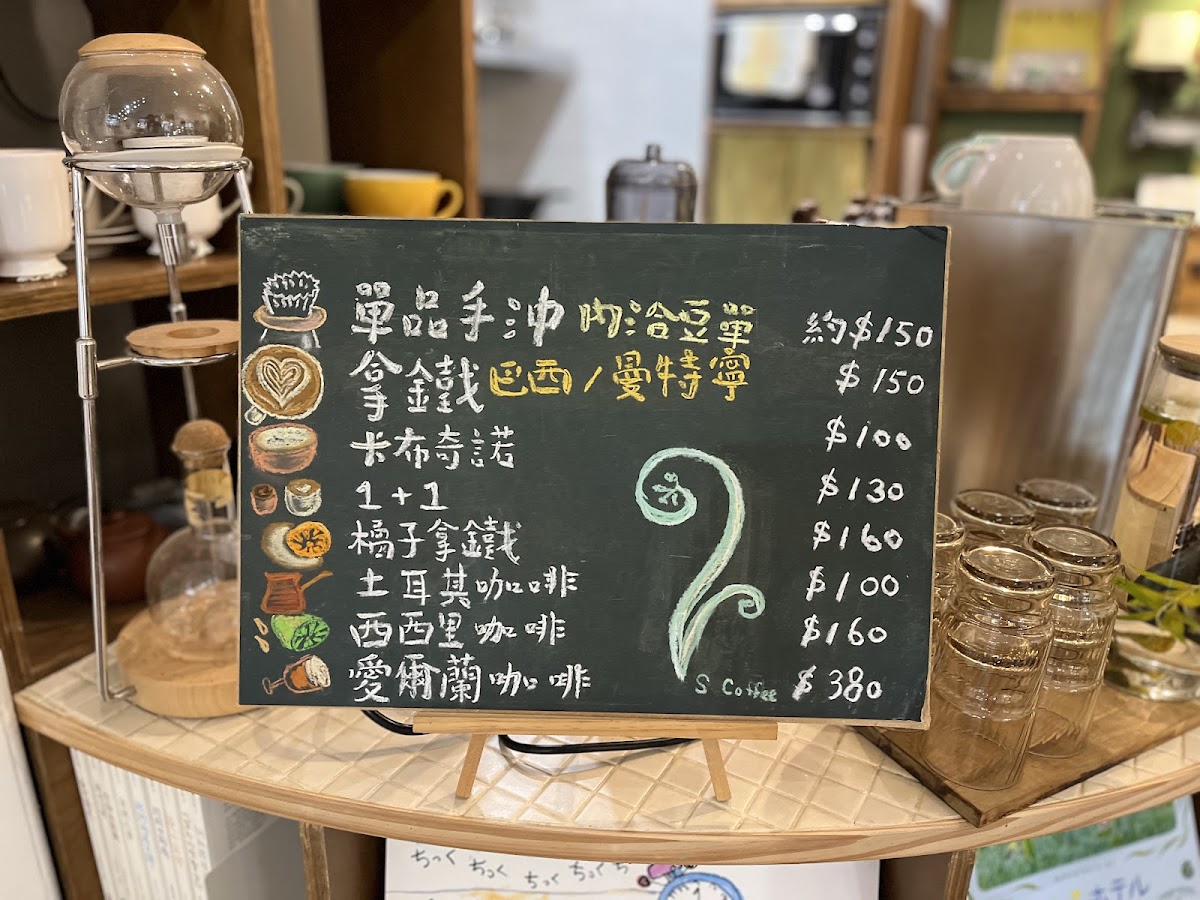 單品手沖 內洽豆單 約$150
拿鐵 巴西/曼特寧 $150
卡布奇諾 $100
1+1 $130
橘子拿鐵 $160
土耳其咖啡 $100
西西里咖啡 $160
愛爾蘭咖啡 $380
S Coffee
ちっく ちっく ちっく ちっ
ホテル